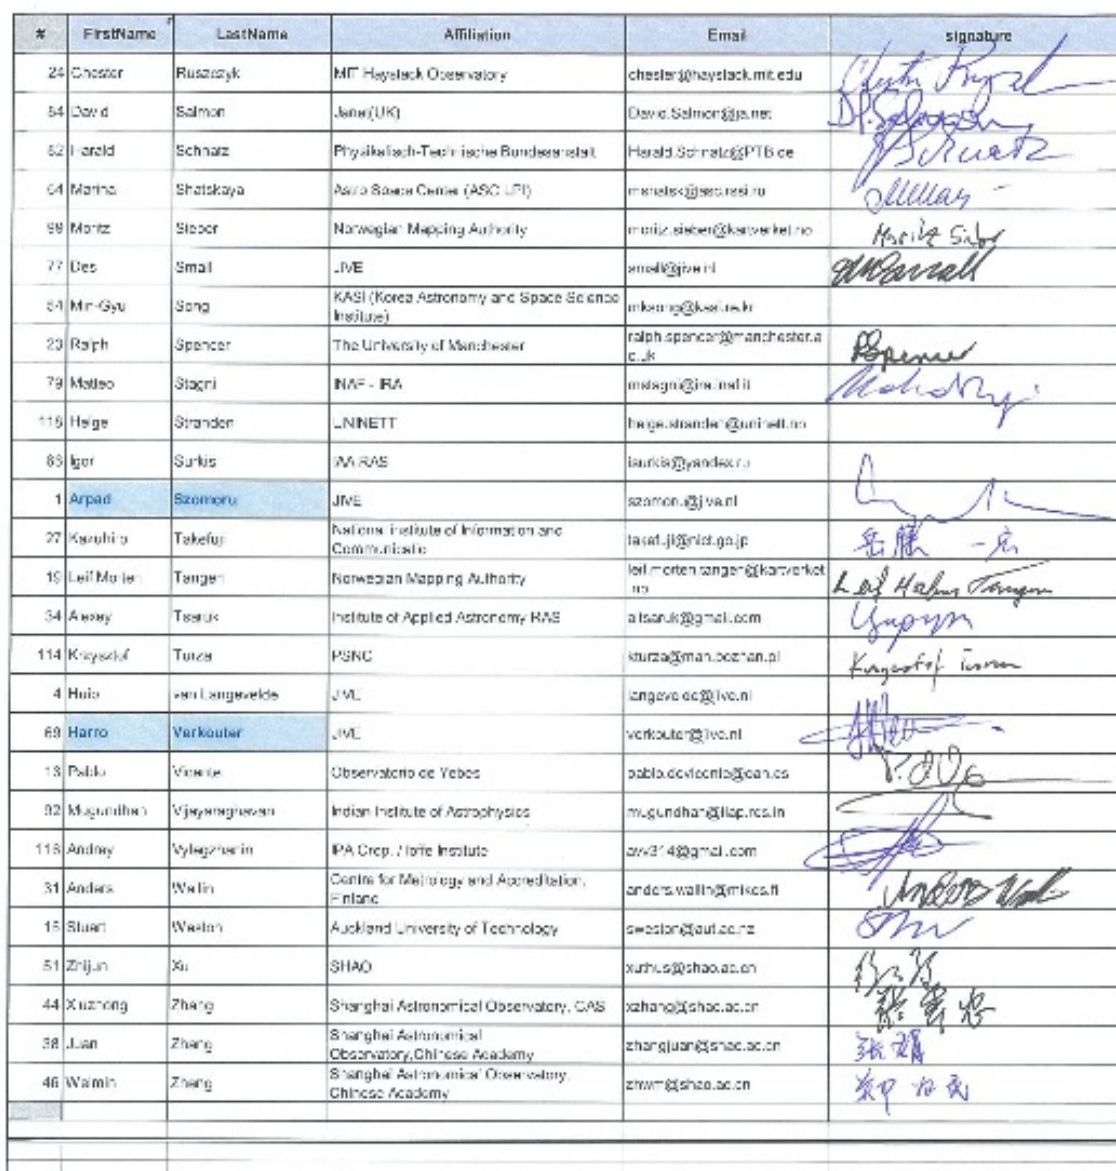 # FirstName LastName Affiliation Email signature
24 Chester Ruszczyk MIT Haystack Observatory chester@haystack.mit.edu
David Salmon Janet(UK) David.Salmon@ja.net
Harald Schnatz Physikalisch-Technische Bundesanstalt Harald.Schnatz@PTB.de
Marina Shatskaya Astro Space Center (ASC LPI) mshatsk@asc.rssi.ru
Moritz Sieber Norwegian Mapping Authority moritz.sieber@kartverket.no Moritz Sieber
77 Des Small JIVE small@jive.nl
Min-Gyu Song KASI (Korea Astronomy and Space Science
Institute) mksong@kasi.re.kr
23 Ralph Spencer The University of Manchester ralph.spencer@manchester.a
c.uk
79 Matteo Stagni INAF - IRA mstagni@ira.inaf.it
Helge Stranden UNINETT helge.stranden@uninett.no
Igor Surkis IAA RAS isurkis@yandex.ru
1 Arpad Szomoru JIVE szomoru@jive.nl
27 Kazuhiro Takefuji National Institute of Information and
Communicatio takefuji@nict.go.jp 岳藤 一宏
19 Leif Morten Tangen Norwegian Mapping Authority leif.morten.tangen@kartverket
.no Leif Morten Tangen
34 Alexey Tsaruk Institute of Applied Astronomy RAS altsaruk@gmail.com
114 Krzysztof Turza PSNC kturza@man.poznan.pl Krzysztof Turza
4 Huib van Langevelde JIVE langevelde@jive.nl
69 Harro Verkouter JIVE verkouter@jive.nl
13 Pablo Vicente Observatorio de Yebes
92 Mugundhan Vijayaraghavan Indian Institute of Astrophysics mugundhan@iiap.res.in
Andrey Vylegzhanin IPA Crop. / Ioffe Institute avv314@gmail.com
31 Anders Wallin Centre for Metrology and Accreditation,
Finland anders.wallin@mikes.fi
15 Stuart Weston Auckland University of Technology sweston@aut.ac.nz
51 Zhijun Xu SHAO xuthus@shao.ac.cn
44 Xiuzhong Zhang Shanghai Astronomical Observatory, CAS xzhang@shao.ac.cn
38 Juan Zhang Shanghai Astronomical
Observatory,Chinese Academy zhangjuan@shao.ac.cn 张娟
46 Weimin Zheng Shanghai Astronomical Observatory,
Chinese Academy zhwm@shao.ac.cn 郑为民